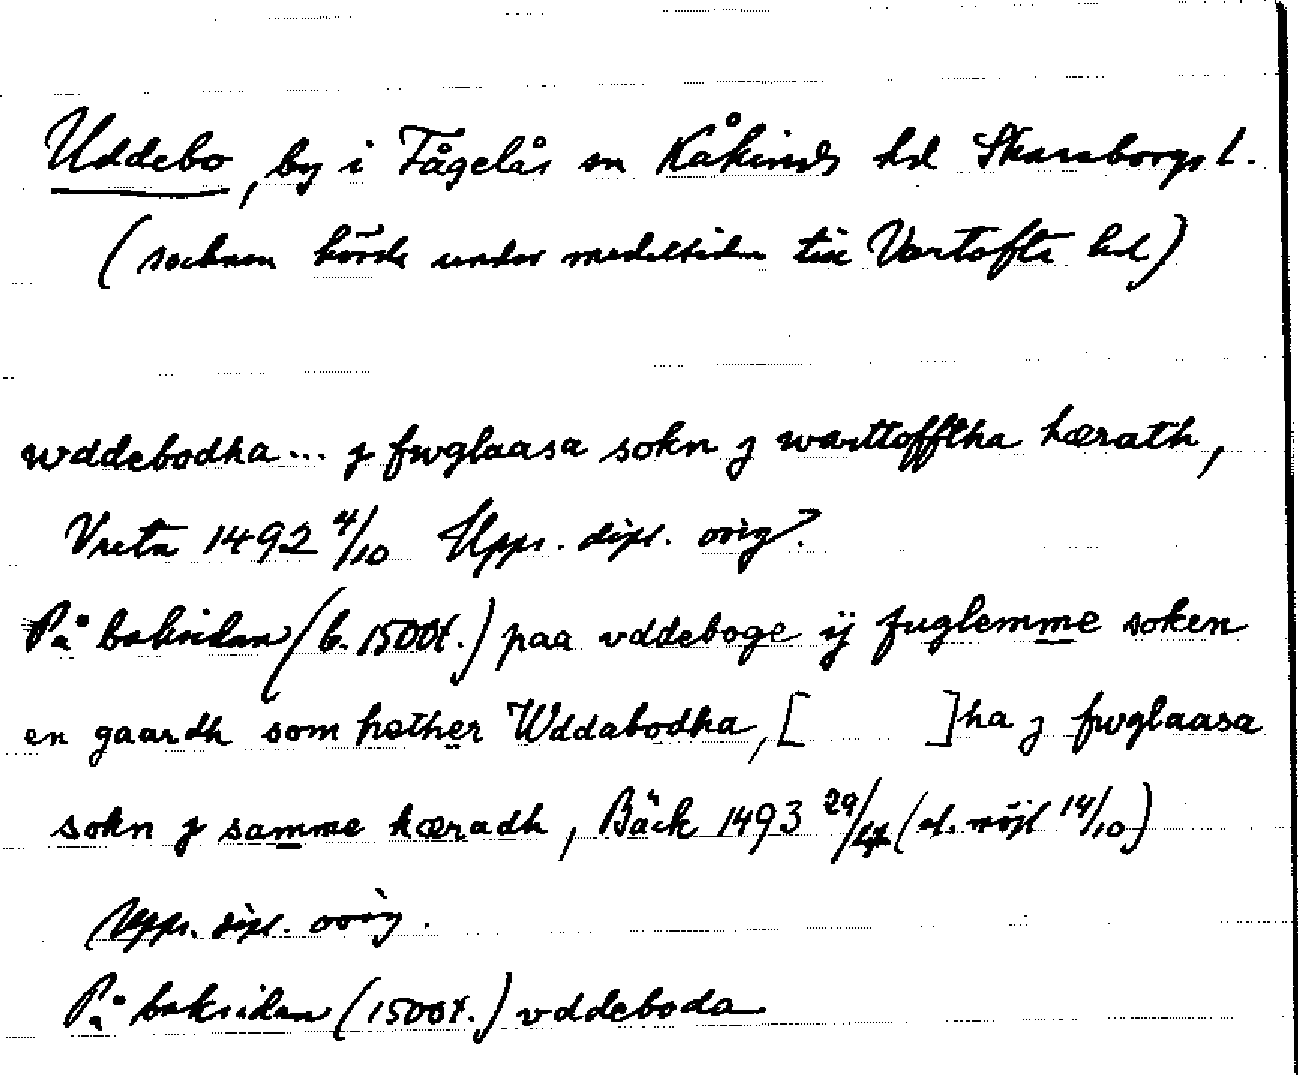 Uddebo, by i Fågelås sn Kåkinds hd Skaraborgs l.
(socknen hörde under medeltiden till Vartofta hd)
wddebodha... j fwglaasa sokn j warttofftha hærath,
Vreta 1492 4/10 Upps. dipl. orig.
På baksidan (b. 1500t.) paa vddeboge ij fuglemme soken
en gaardh som hether Wddabodha, [ ]ha j fwglaasa
sokn j samme hæradh, Bäck 1493 29/4 (el. möjl 14/10)
Upps. dipl. orig.
På baksidan (1500t.) vddeboda